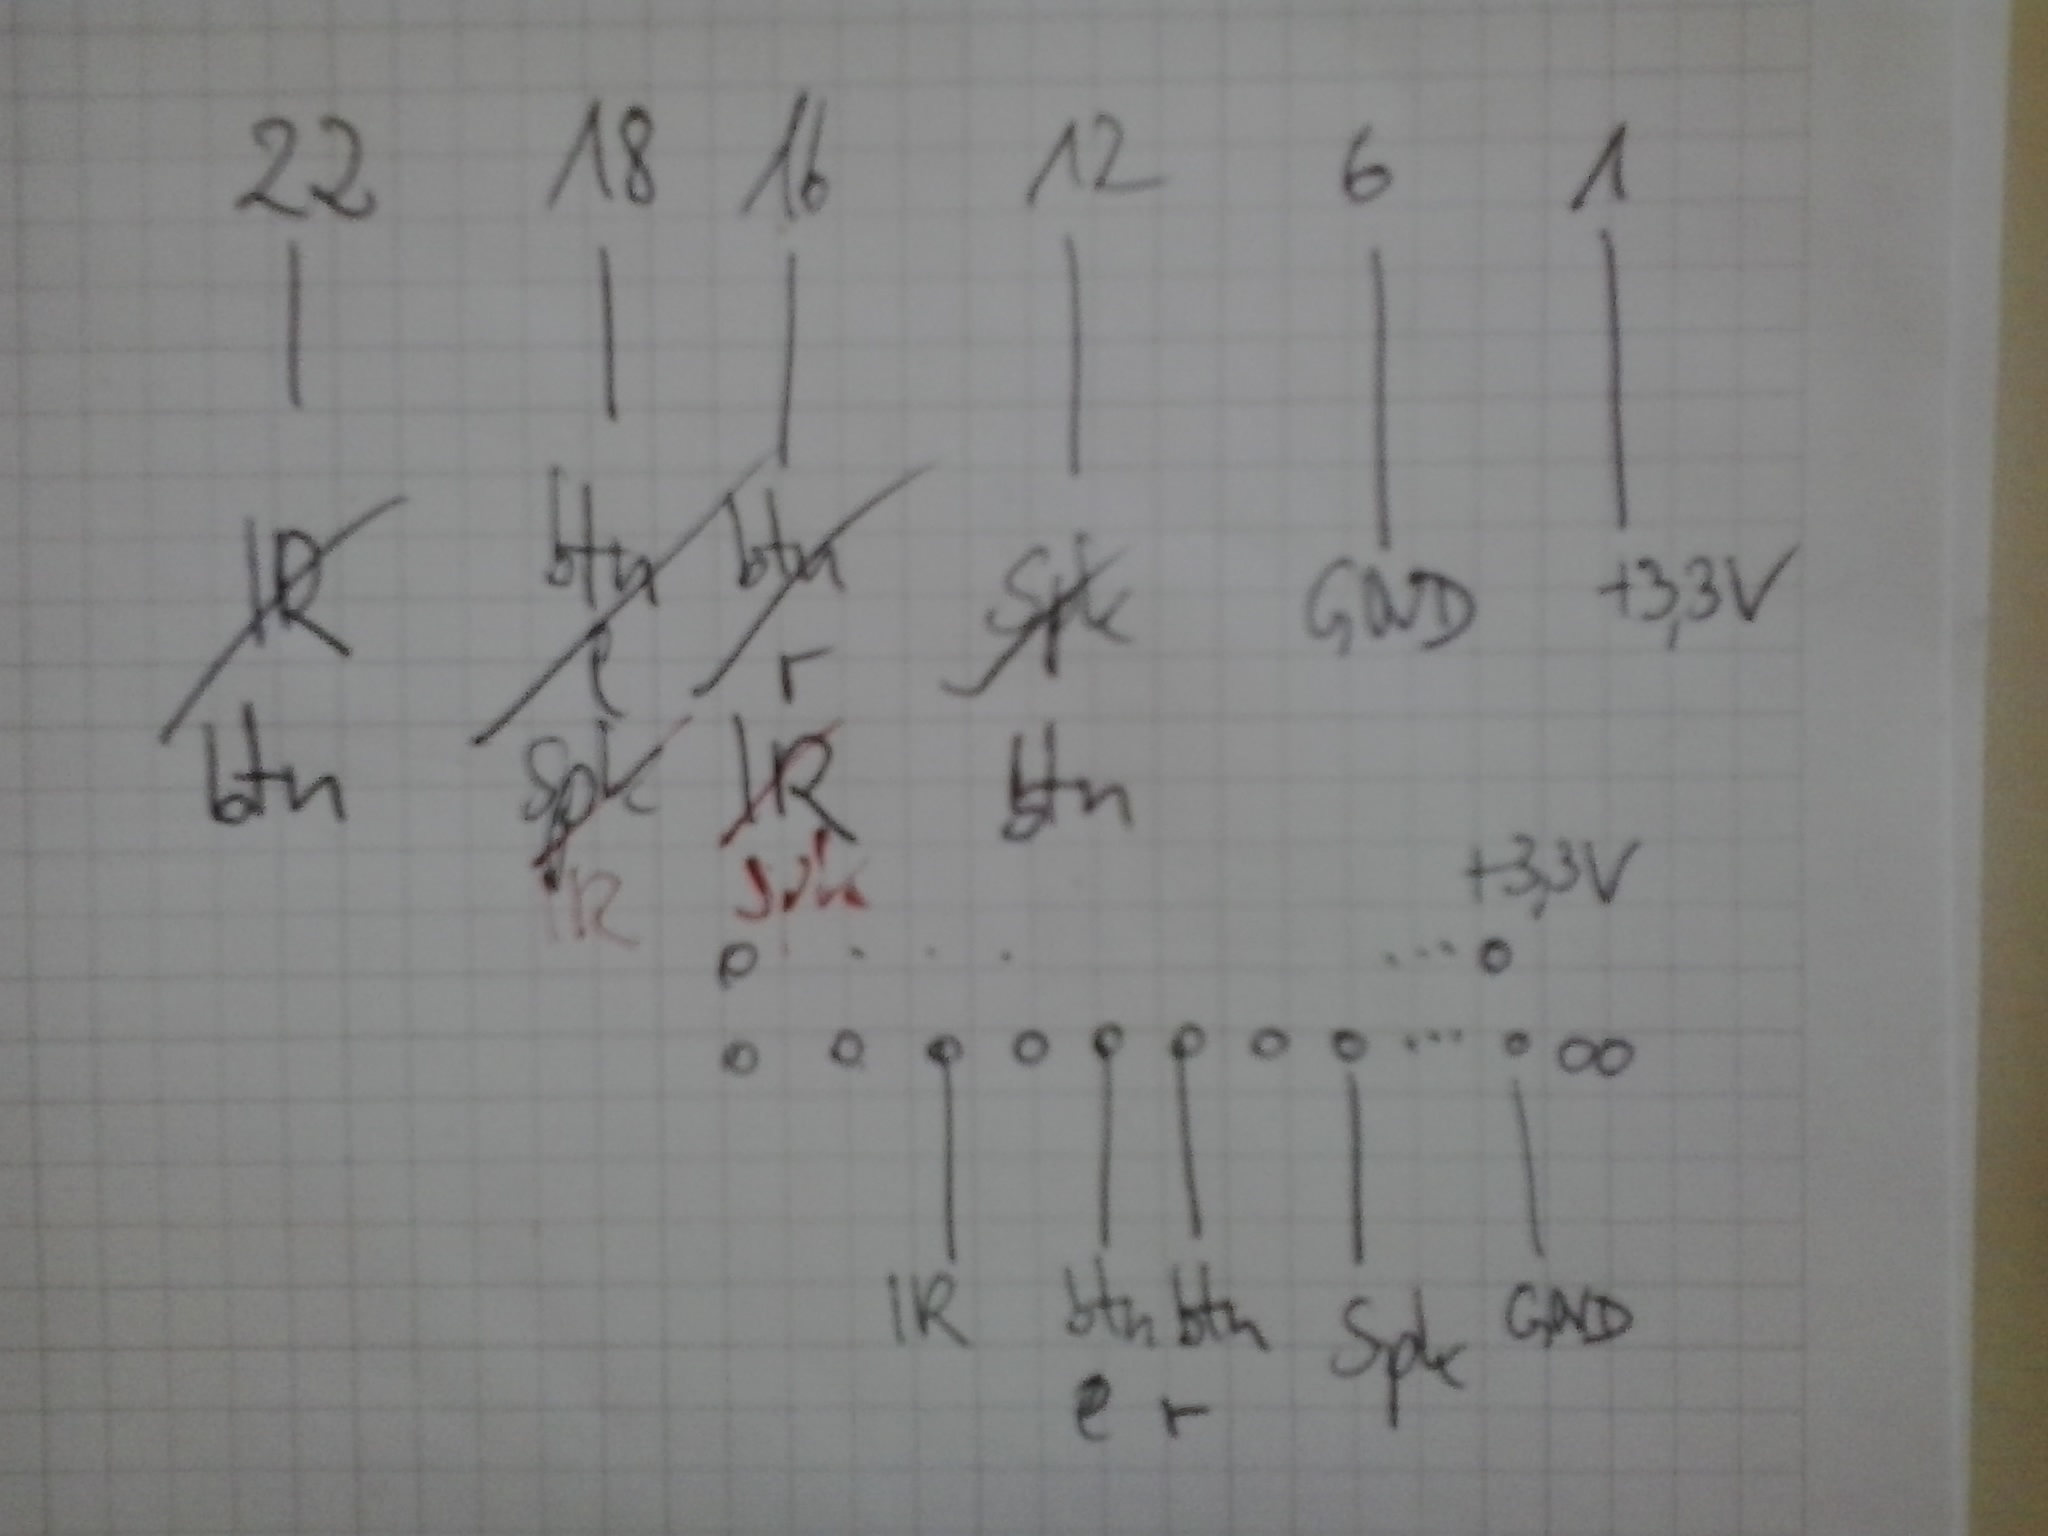 22 18 16 12 6 1
IR btn btn Spk GND +3,3V
l r
btn Spk IR btn
IR Spk
+3,3V
IR btn btn Spk GND
l r